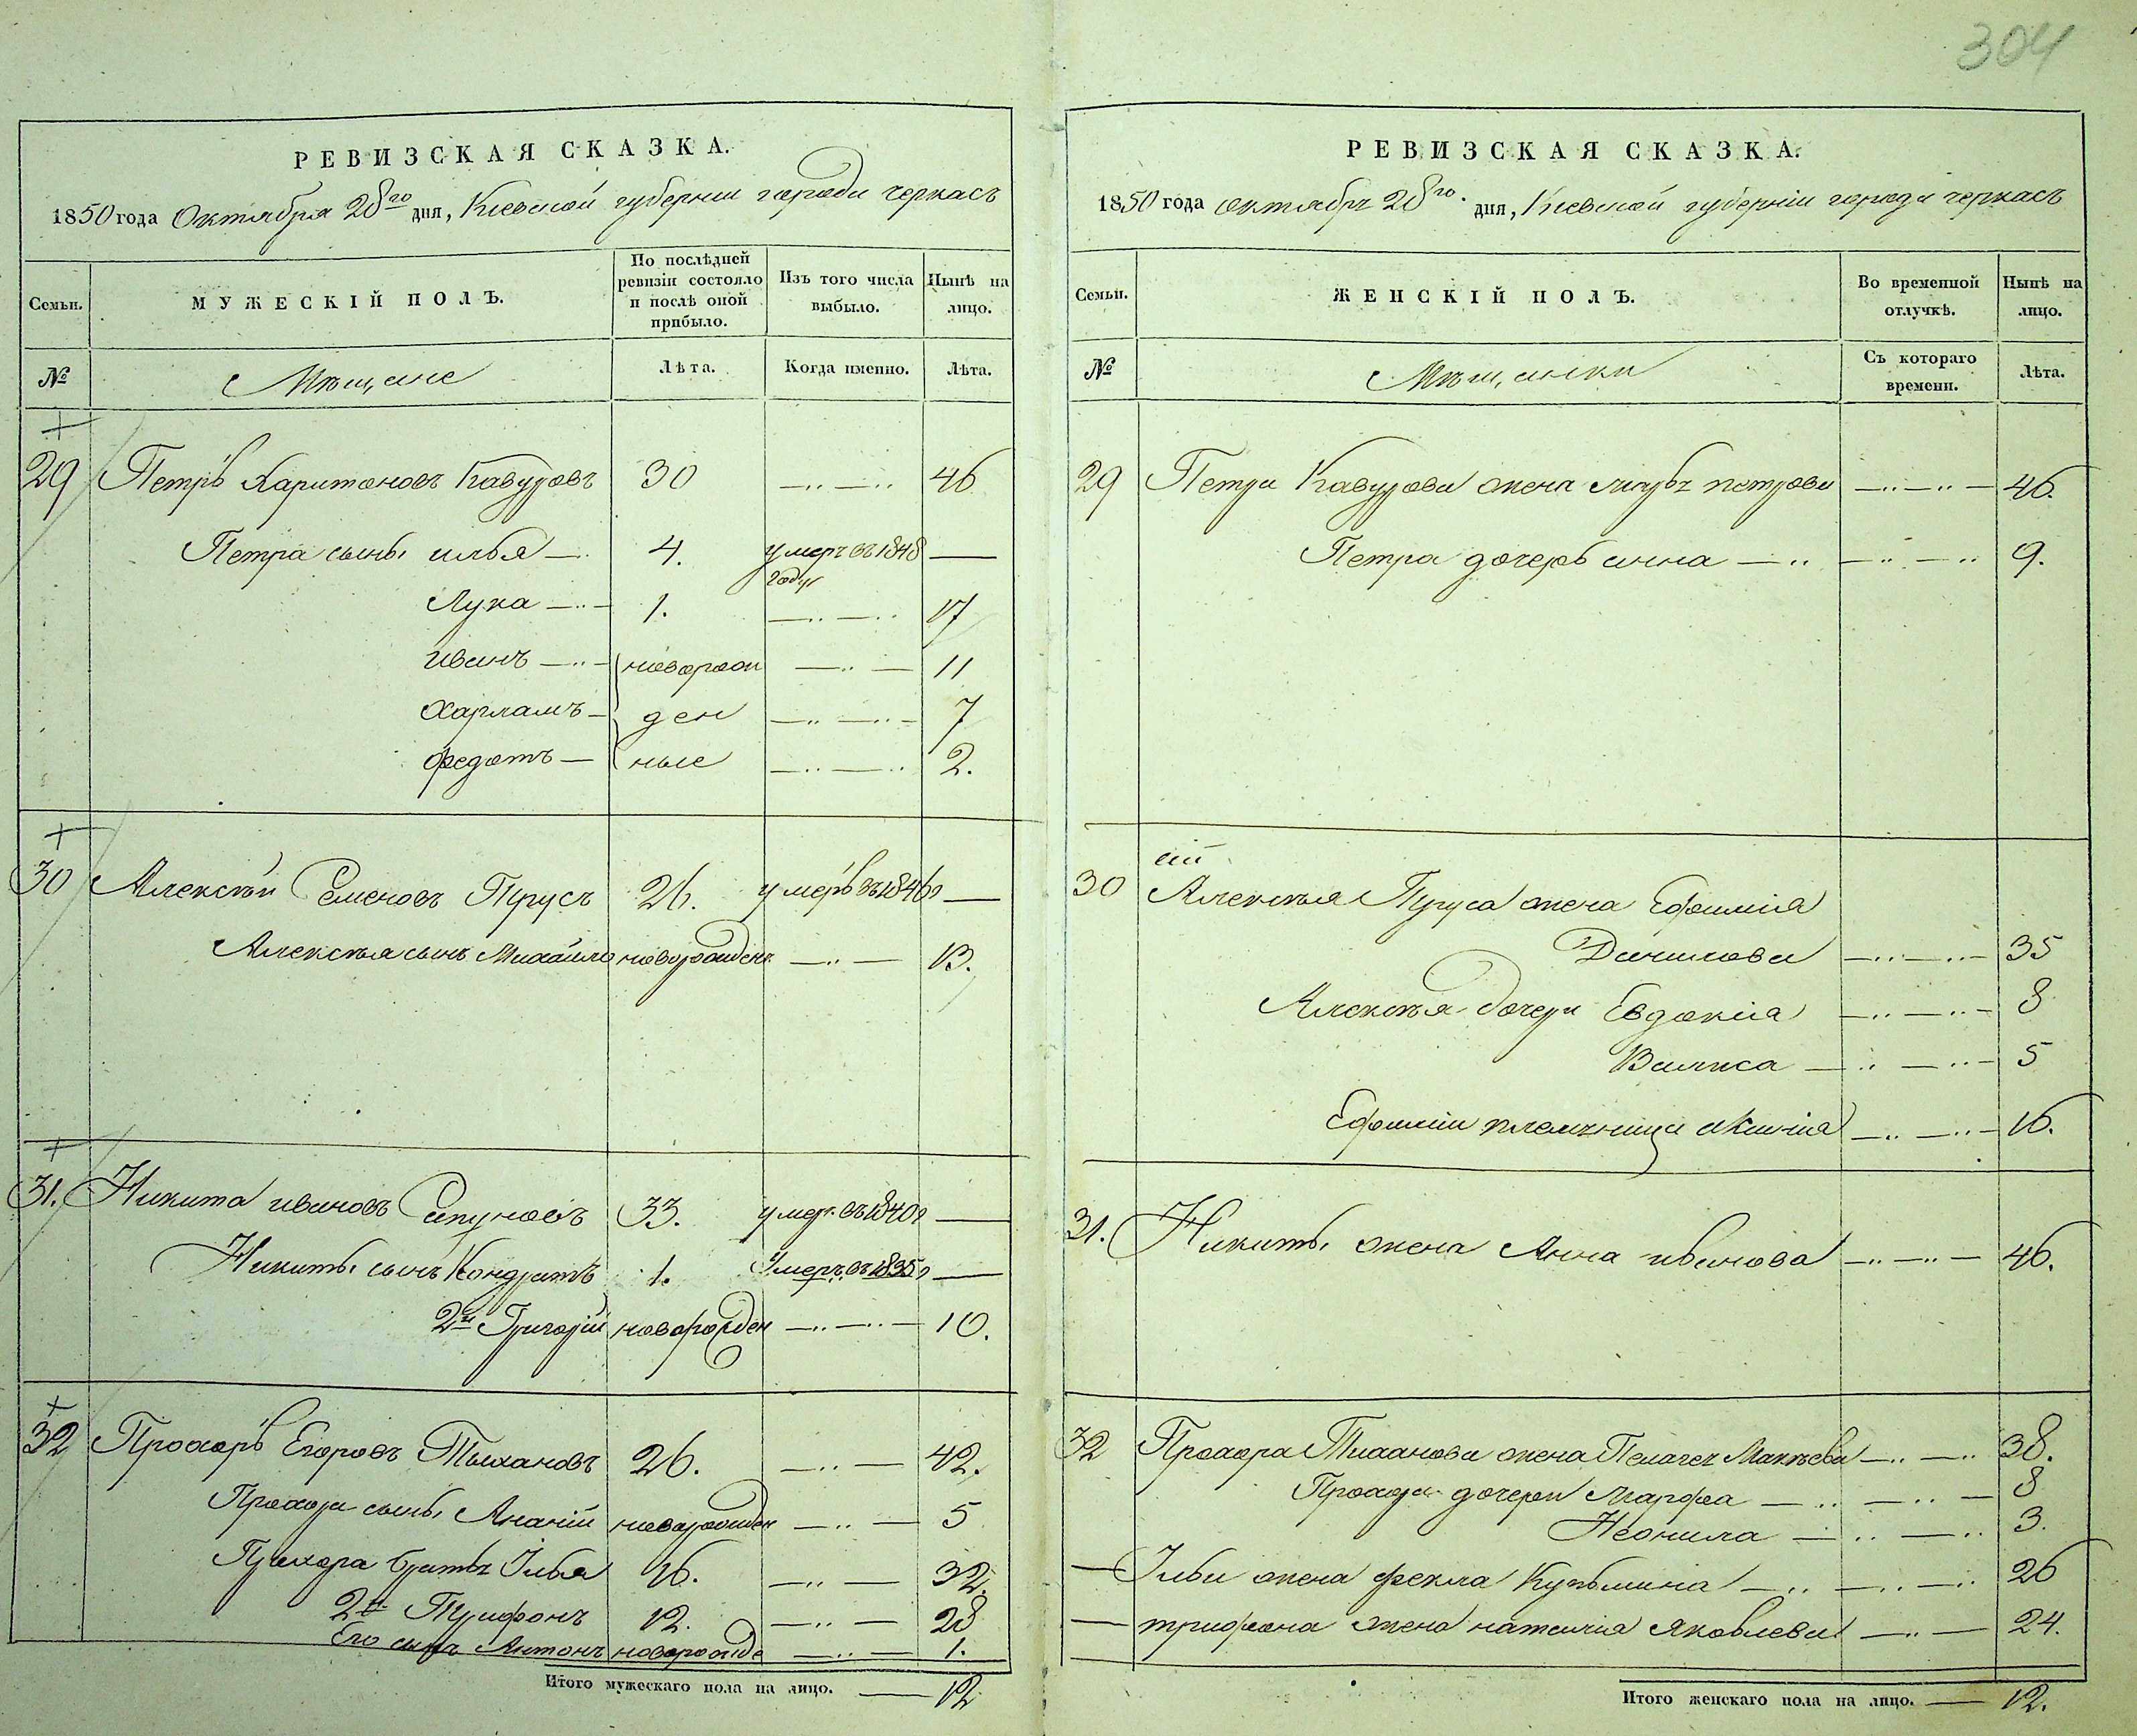 304
РЕВИЗСКАЯ СКАЗКА.
1850 года Октября 28го дня, Киевской губернии города черкасъ
Семьи.
МУЖЕСКІЙ ПОЛЪ.
По послѣдней ревизіи состояло и послѣ оной прибыло.
Изъ того числа выбыло.
Нынѣ на лицо.
№
Мѣщане
Лѣта.
Когда именно.
Лѣта.
29 Петръ Харитоновъ Кавуровъ 30 46
Петра сыны илья 4. умеръ въ 1848 году
Лука 1. 17
иванъ новорож 11
Харламъ ден 7
федотъ ные 2.
30 Алексѣй Семеновъ Пурусъ 26. умеръ въ 1846г
Алексѣя сынъ Михайло новорожден 13.
31. Никита ивановъ Сапуновъ 33. умер. въ 1840г
Никиты сынъ Кондратъ 1. Умеръ въ 1835г
2й Григорій новорожден 10.
32 Прохоръ Егоровъ Тыхановъ 26. 42.
Прохора сынъ Ананій новорожден 5
Прохора братья Илья 16. 32.
2й Трифонъ 12. 28
Его сынъ Антонъ новорожде 1.
Итого мужескаго пола на лицо. 12
РЕВИЗСКАЯ СКАЗКА.
1850 года октября 28го. дня, Киевской губерніи города черкасъ
Семьи.
ЖЕНСКІЙ ПОЛЪ.
Во временной отлучкѣ.
Нынѣ на лицо.
№
Мѣщанки
Съ котораго времени.
Лѣта.
29 Петра Кавурова жена петрова 46.
Петра дочерь анна 9.
30 Алексѣя Пуруса жена Ефимія
Данилова 35
Алексѣя дочери Евдокія 8
Васса 5
Ефиміи племяница Ксинія 16.
31. Никиты жена Анна иванова 46.
32 Прохора Тиханова жена Пелагея Макѣева 38.
Прохора дочери Марфа 8
Неонила 3.
Ильи жена фекла Кузьмина 26
трифона жена наталія Яковлева 24.
Итого женскаго пола на лицо. 12.